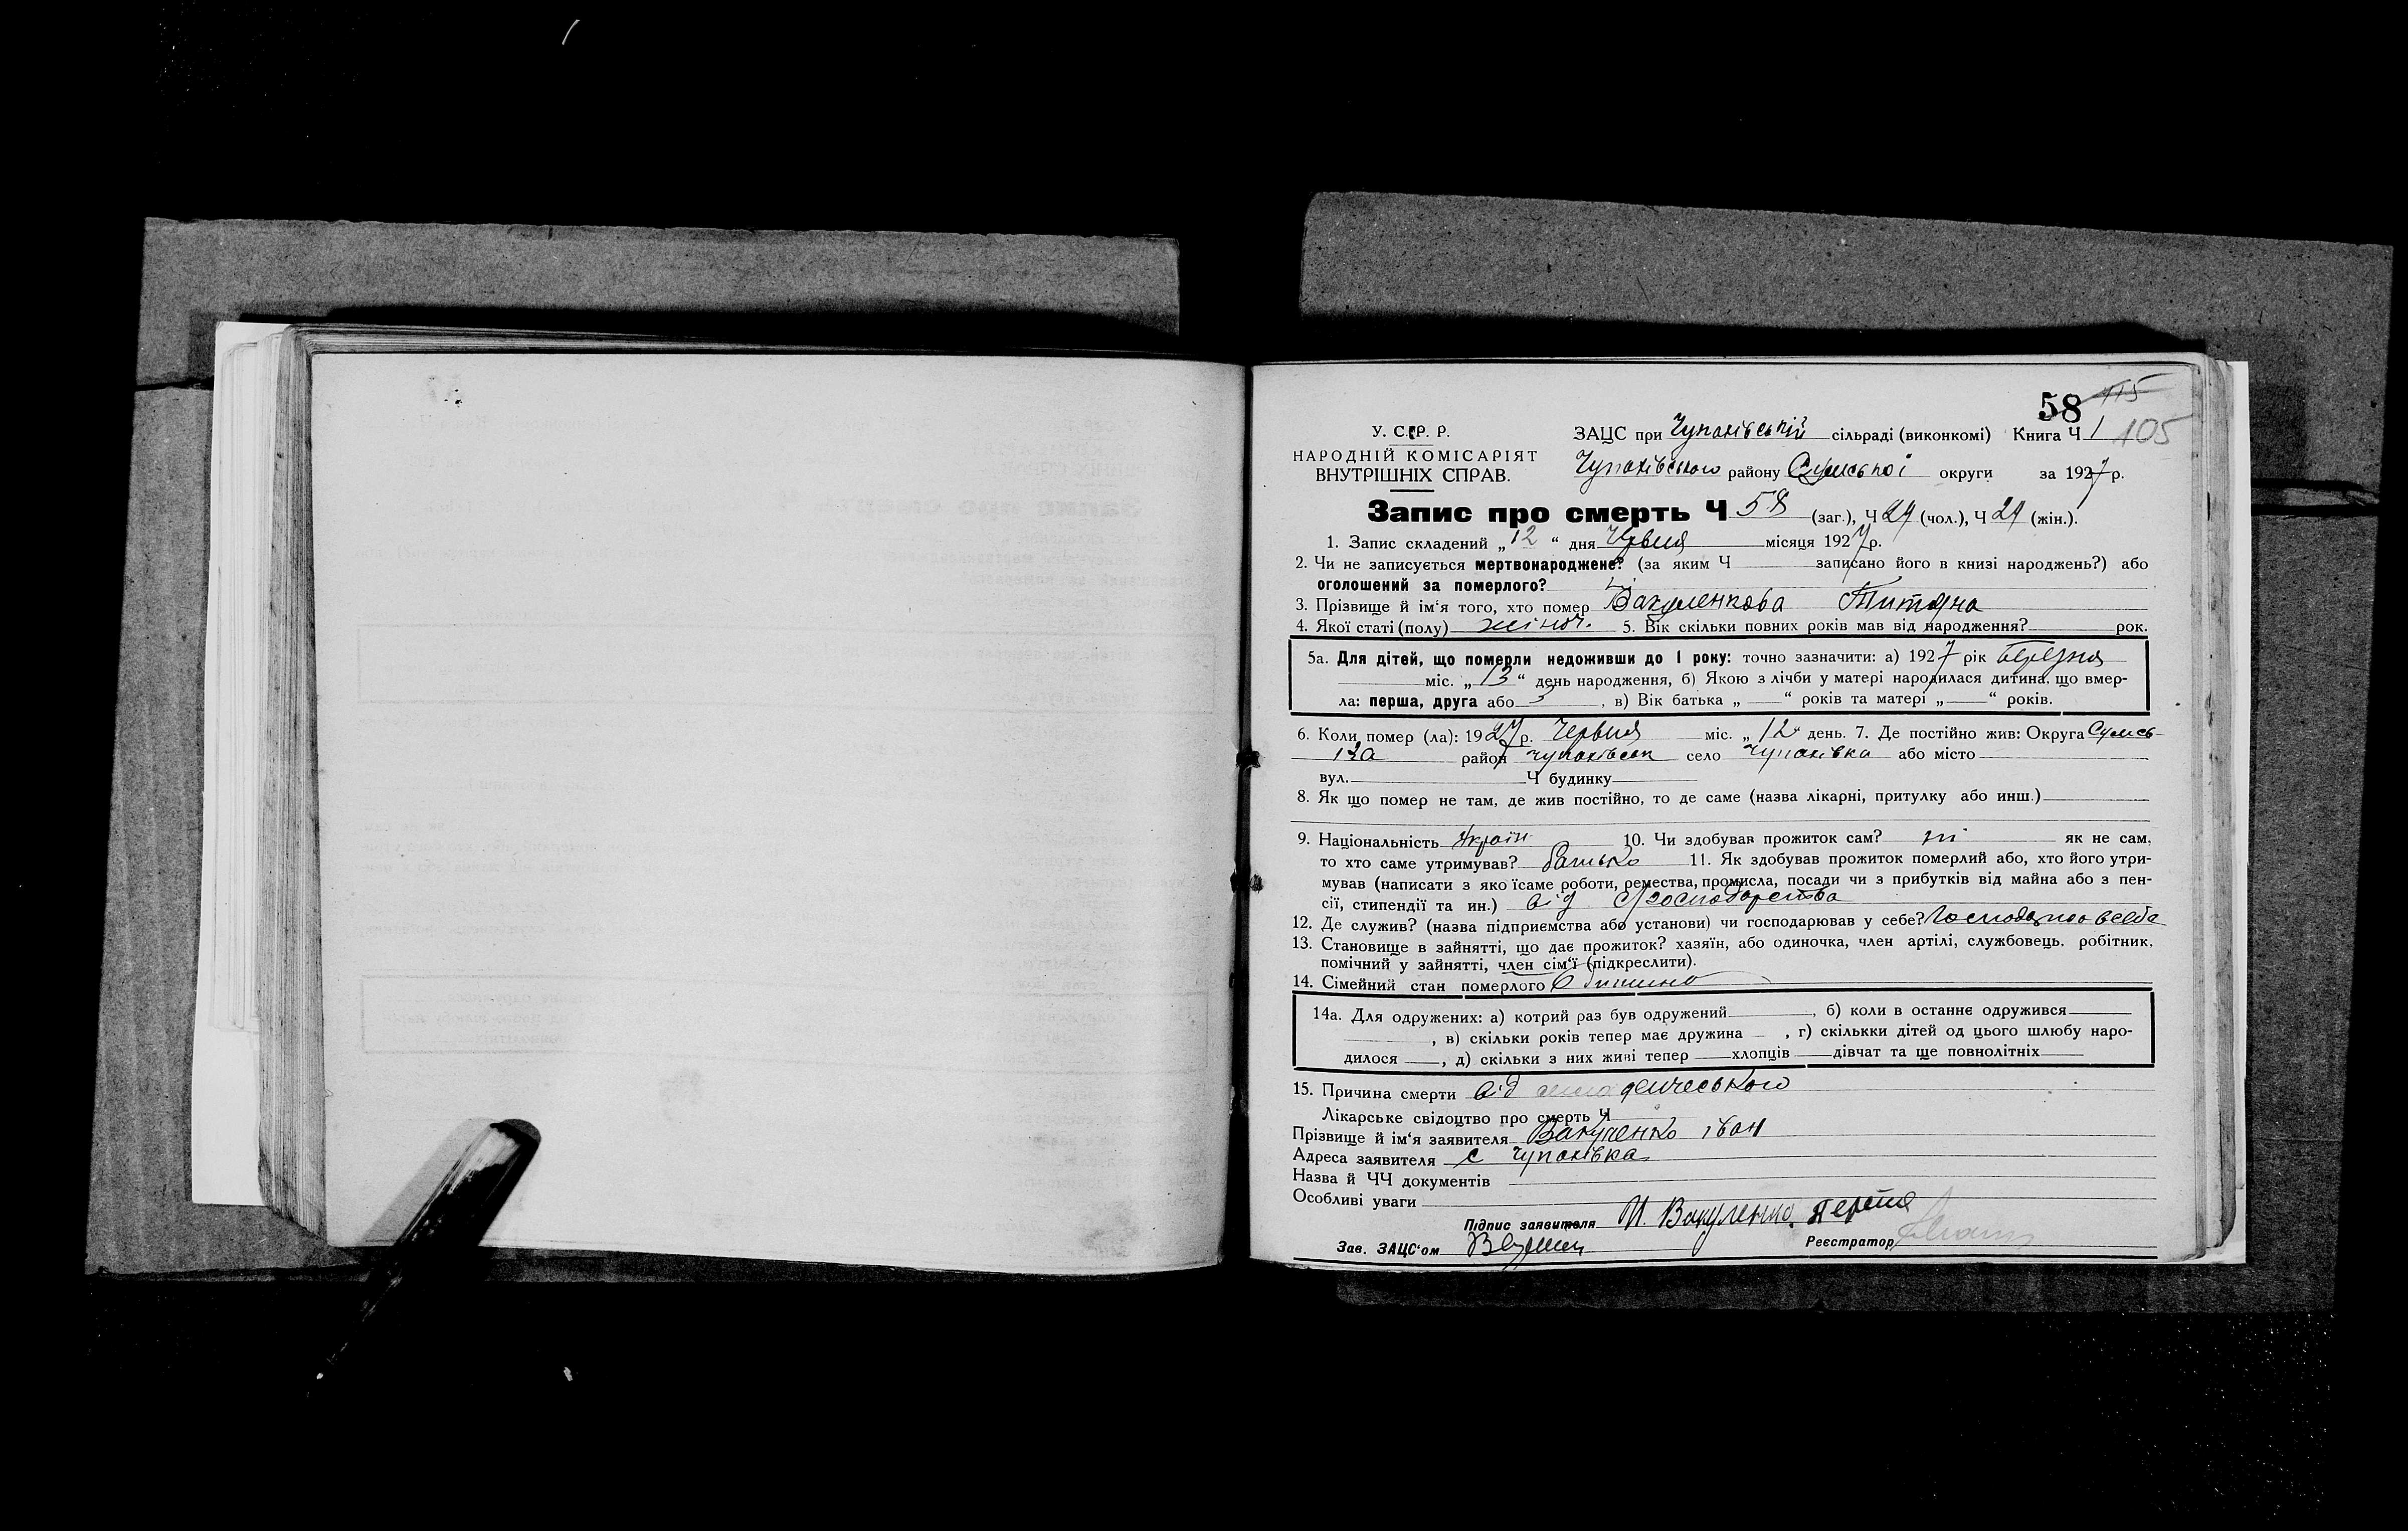 58 115
У. С. Р. Р. ЗАЦС при Чупахівській сільраді (виконкомі) Книга Ч 1 105
НАРОДНІЙ КОМІСАРІЯТ
ВНУТРІШНІХ СПРАВ. Чупахівського району Сумської округи за 1927 р.
Запис про смерть Ч 58 (заг.), Ч 29 (чол.), Ч 29 (жін.).
1. Запис складений „12“ дня Червня місяця 1927 р.
2. Чи не записується мертвонароджене? (за яким Ч записано його в книзі народжень?) або
оголошений за померлого? ні
3. Прізвище й ім‘я того, хто помер Вакуленкова Титяна
4. Якої статі (полу) жіноч. 5. Вік скільки повних років мав від народження? рок.
5а. Для дітей, що померли недоживши до 1 року: точно зазначити: а) 1927 рік березня
міс. „13“ день народження, б) Якою з лічби у матері народилася дитина, що вмер-
ла: перша, друга або 3, в) Вік батька „ “ років та матері „ “ років.
6. Коли помер (ла): 1927 р. Червня міс. „12 день. 7. Де постійно жив: Округа Сумсь-
ка район Чупахівськ село Чупахівка або місто
вул. Ч будинку
8. Як що помер не там, де жив постійно, то де саме (назва лікарні, притулку або инш.)
9. Національність Україн 10. Чи здобував прожиток сам? ні як не сам,
то хто саме утримував? батько 11. Як здобував прожиток померлий або, хто його утри-
мував (написати з яко їсаме роботи, ремества, промисла, посади чи з прибутків від майна або з пен-
сії, стипендії та ин.) від с/господарства
12. Де служив? (назва підприємства або установи) чи господарював у себе?
13. Становище в зайнятті, що дає прожиток? хазяїн, або одиночка, член артілі, службовець. робітник,
помічний у зайнятті, член сім‘ї (підкреслити).
14. Сімейний стан померлого
14а. Для одружених: а) котрий раз був одружений , б) коли в останнє одружився
, в) скільки років тепер має дружина , г) скількки дітей од цього шлюбу наро-
дилося , д) скільки з них живі тепер хлопців дівчат та ще повнолітніх
15. Причина смерти від
Лікарське свідоцтво про смерть Ч
Прізвище й ім‘я заявителя Вакуленко Іван
Адреса заявителя с Чупахівка
Назва й ЧЧ документів
Особливі уваги
Підпис заявителя И. Вакуленко
Зав. ЗАЦС‘ом Реєстратор